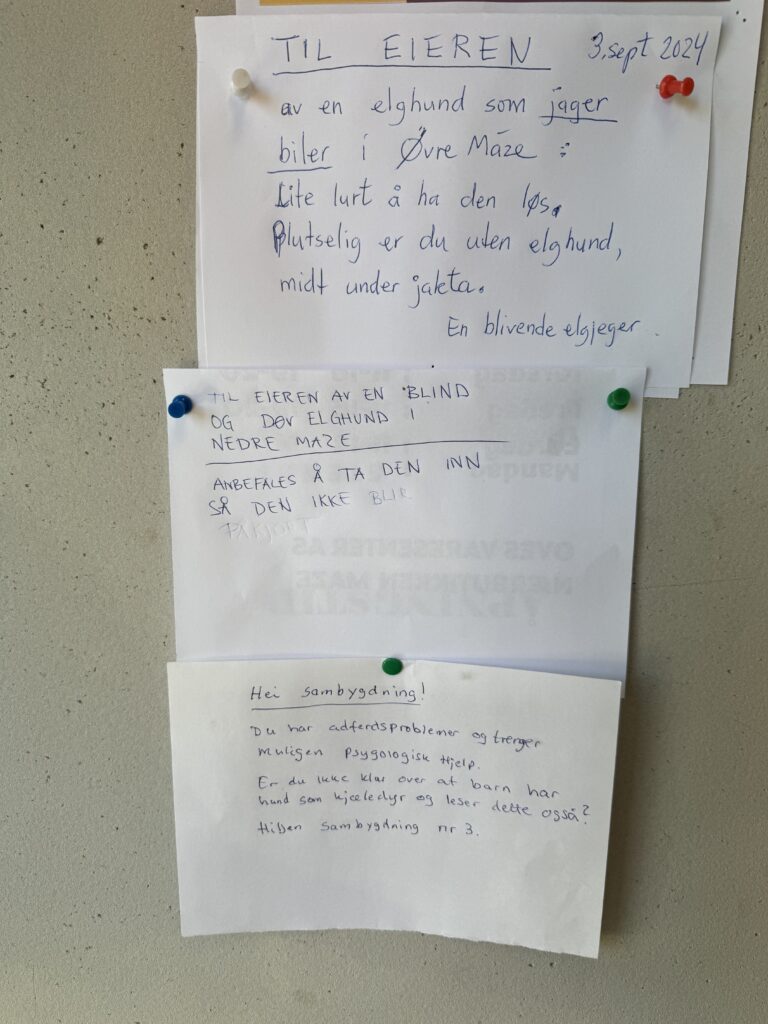 TIL EIEREN 3. sept 2024
av en elghund som jager
biler i Øvre Máze :
Lite lurt å ha den løs.
Plutselig er du uten elghund,
midt under jakta.
En blivende elgjeger.
TIL EIEREN AV EN BLIND
OG DØV ELGHUND I
NEDRE MAZE
ANBEFALES Å TA DEN INN
SÅ DEN IKKE BLIR
PÅKJØRT
OVES VARESENTER AS
NÆRBUTIKKEN MAZE
Hei sambygdning!
Du har adferdsproblemer og trenger
muligen psygologisk hjelp.
Er du ikke klar over at barn har
hund som kjæledyr og leser dette også?
Hilsen sambygdning nr 3.